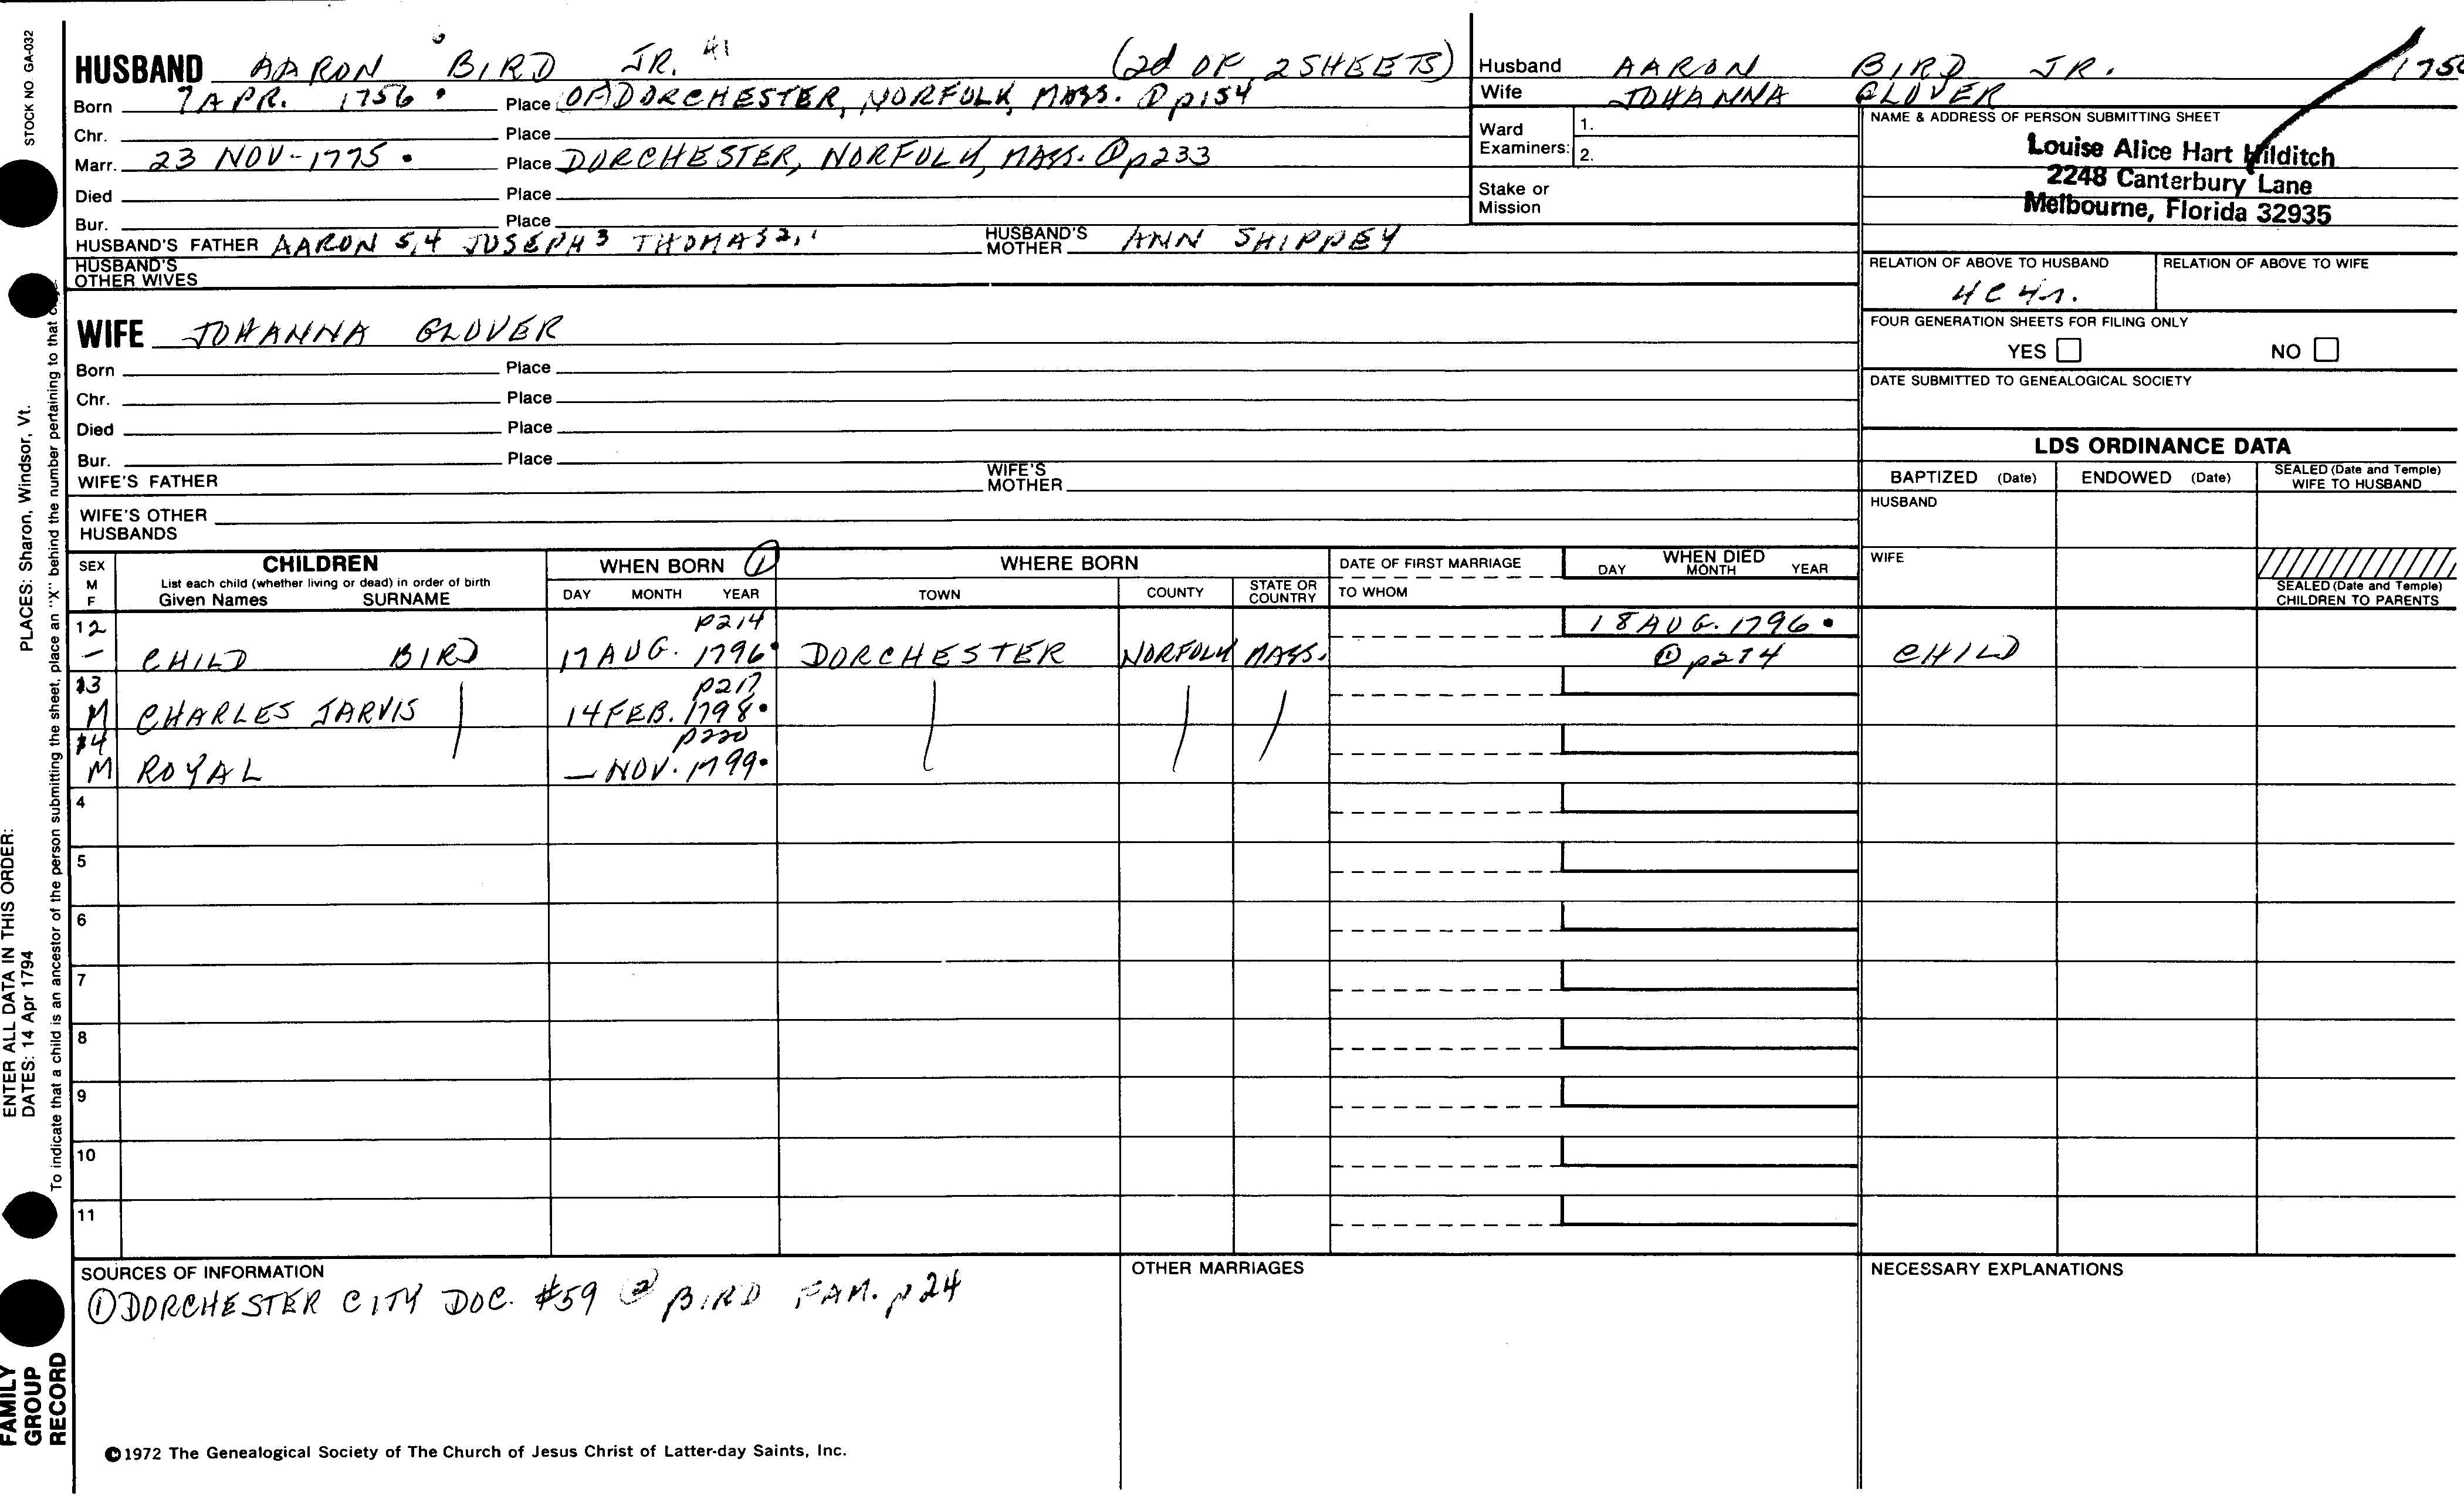 STOCK NO GA-032
HUSBAND AARON BIRD JR. 41 (2d OF 2 SHEETS)
Born 7 APR. 1756 Place OF DORCHESTER, NORFOLK, MASS. ① p154
Chr. Place
Marr. 23 NOV-1775 Place DORCHESTER, NORFOLK, MASS. ① p233
Died Place
Bur. Place
HUSBAND'S FATHER AARON 5,4 JOSEPH 3 THOMAS 2,1 HUSBAND'S MOTHER ANN SHIPPEY
HUSBAND'S
OTHER WIVES
Husband AARON BIRD JR. 1756
Wife JOHANNA GLOVER
Ward
Examiners: 1.
2.
Stake or
Mission
NAME & ADDRESS OF PERSON SUBMITTING SHEET
Louise Alice Hart Hilditch
2248 Canterbury Lane
Melbourne, Florida 32935
RELATION OF ABOVE TO HUSBAND RELATION OF ABOVE TO WIFE
4C 4r.
FOUR GENERATION SHEETS FOR FILING ONLY
YES NO
DATE SUBMITTED TO GENEALOGICAL SOCIETY
WIFE JOHANNA GLOVER
Born Place
Chr. Place
Died Place
Bur. Place
WIFE'S FATHER WIFE'S MOTHER
WIFE'S OTHER
HUSBANDS
LDS ORDINANCE DATA
BAPTIZED (Date) ENDOWED (Date) SEALED (Date and Temple) WIFE TO HUSBAND
HUSBAND
WIFE
SEALED (Date and Temple)
CHILDREN TO PARENTS
SEX M F CHILDREN WHEN BORN ① WHERE BORN DATE OF FIRST MARRIAGE WHEN DIED
List each child (whether living or dead) in order of birth
Given Names SURNAME DAY MONTH YEAR TOWN COUNTY STATE OR COUNTRY TO WHOM DAY MONTH YEAR
12 p214 18 AUG. 1796
– CHILD BIRD 17 AUG. 1796 DORCHESTER NORFOLK MASS. ① p274 CHILD
13 p217
M CHARLES JARVIS 14 FEB. 1798
14 p220
M ROYAL — NOV. 1799
4
5
6
7
8
9
10
11
SOURCES OF INFORMATION OTHER MARRIAGES NECESSARY EXPLANATIONS
① DORCHESTER CITY DOC. #59 ② BIRD FAM. p24
©1972 The Genealogical Society of The Church of Jesus Christ of Latter-day Saints, Inc.
FAMILY
GROUP
RECORD
ENTER ALL DATA IN THIS ORDER:
DATES: 14 Apr 1794 PLACES: Sharon, Windsor, Vt.
To indicate that a child is an ancestor of the person submitting the sheet, place an "X" behind the number pertaining to that